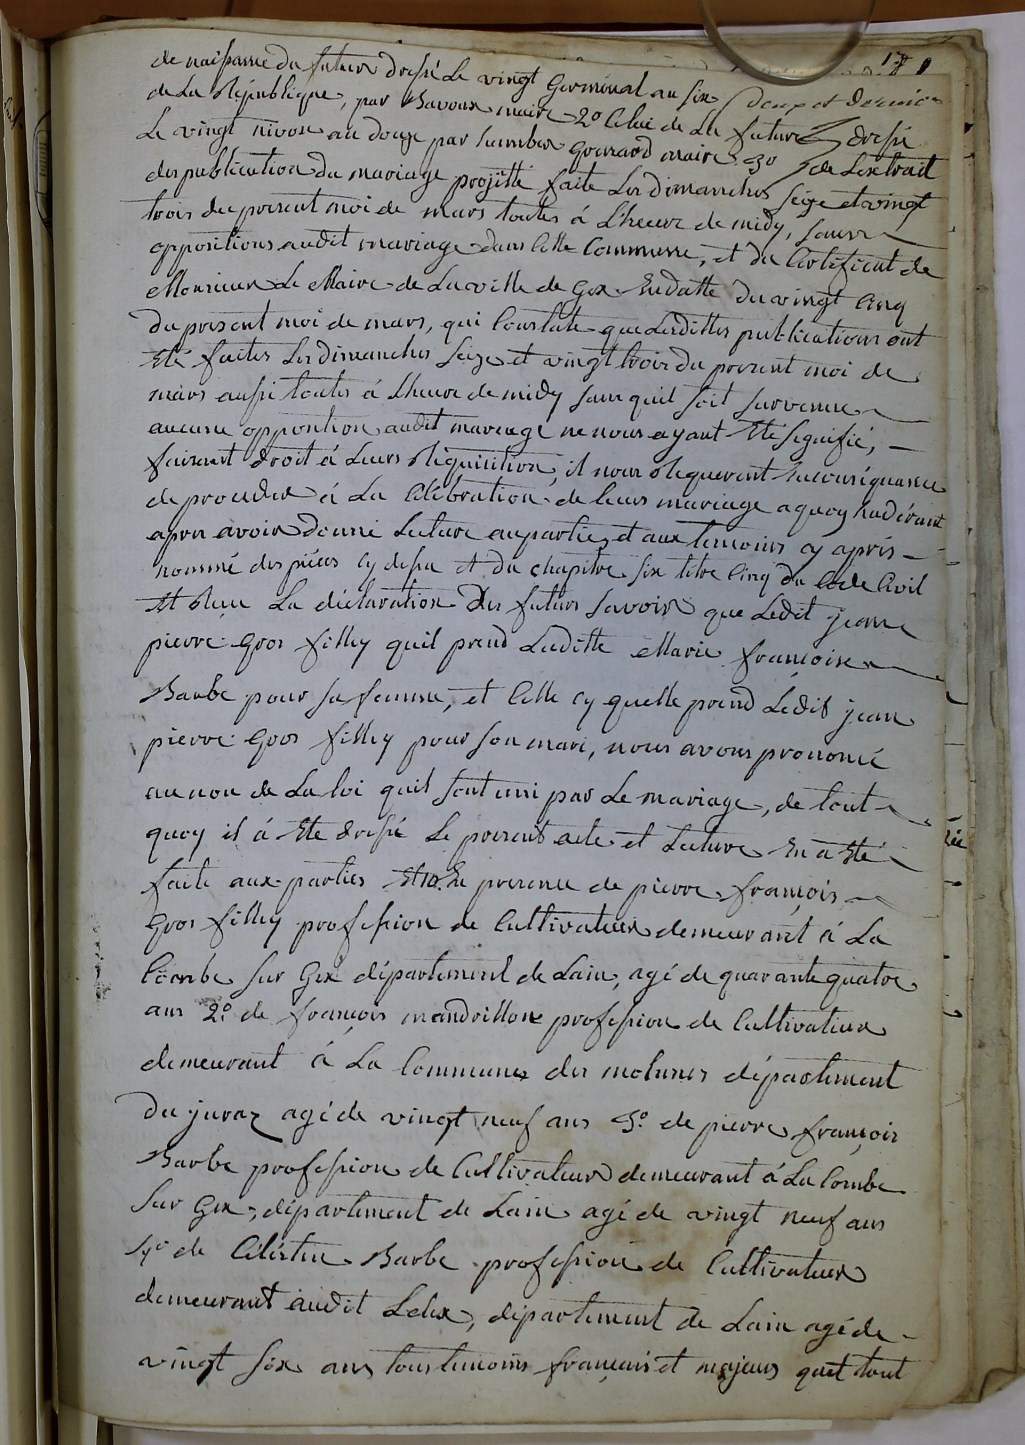 de naissance du futur dressé Le vingt Germinal an six
de La République, par Bavoux maire 2º Celui de La future dressé
Le vingt nivose an douze par humbert Gounard maire 3º de Lextrait
des publication du mariage projetté faite Les dimanches seize et vingt
trois du present moi de mars toutes á L'heure de midy, sans
oppositions audit mariage dans Cette Commune, et du Certificat de
Monsieur Le Maire de La ville de Gex En datte du vingt Cinq
du present moi de mars, qui Constate que Lesdittes publications ont
Eté faites Les dimanches seize et vingt trois du present moi de
mars aussi toutes á L'heure de midy sans quil soit survenue
aucune opposition audit mariage ne nous ayant Eté signifié,
faisant droit á Leurs réquisition, il nous requerent En Conséquance
de proceder á La Célébration de leurs mariage a quoy adérant
apres avoir donné Lecture au parties et aux temoins cy aprés
nommé des piéces cy dessu et du chapitre six titre Cinq du Code Civil
Et reçu La déclaration des futurs savoir que Ledit jean
pierre Gros fillex quil prend Laditte Marie françoise
Barbe pour sa femme, et Celle cy quelle prend Ledit jean
pierre Gros filley pour son mari, nous avons prononcé
au nom de La loi quil sont uni par Le mariage, de tout
quoy il á Eté dressé Le present acte et Lecture En a Eté
faite aux parties Et 1º. En presence de pierre françois
Gros filley profession de Cultivateur demeurant á La
Combe sur Gex département de Lain, agé de quarante quatre
ans 2º. de françois mandrillon profession de Cultivateur
demeurant á La Commune des molunes département
du juraz agé de vingt neuf ans 3º. de pierre françois
Barbe profession de Cultivateur demeurant á La Combe
sur Gex, département de Lain agé de vingt neuf ans
4º de Célestin Barbe profession de Cultivateur
demeurant audit Lelex, département de Lain agé de
vingt six ans tous temoins français et majeurs quet tout